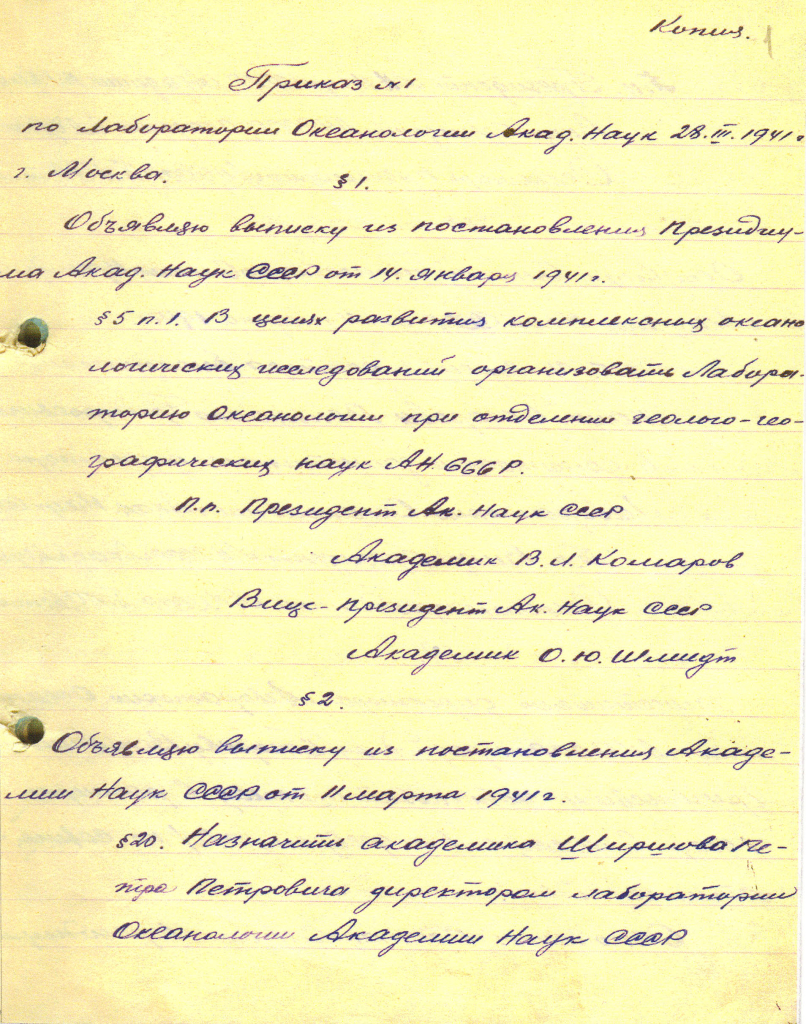 Копия. 1
Приказ № 1
по Лаборатории Океанологии Акад. Наук 28.III.1941 г
г. Москва. § 1.
Объявляю выписку из постановления Президиу-
ма Акад. Наук СССР от 14. января 1941 г.
§ 5 п. 1. В целях развития комплексных океано
логических исследований организовать Лабора-
торию Океанологии при отделении геолого-гео-
графических наук АН. СССР.
П.п. Президент Ак. Наук СССР
Академик В. Л. Комаров
Вице-президент Ак. Наук СССР
Академик О. Ю. Шмидт
§ 2.
Объявляю выписку из постановления Акаде-
мии Наук СССР от 11 марта 1941 г.
§ 20. Назначить академика Ширшова Пе-
тра Петровича директором лаборатории
Океанологии Академии Наук СССР